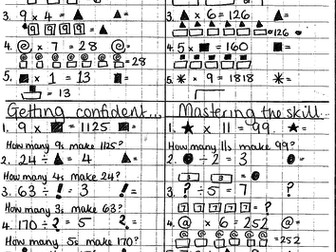 3. 9 × 4 = ▲ ▲=
9 9 9 9 = ▲
4. @ × 7 = 28 @=
=28
5. ■ × 1 = 13 ■=
= 13
Getting confident...
1. 9 × ■ = 1125 ■=
How many 9s make 1125?
2. 24 ÷ ▲ = 4 ▲=
How many 4s make 24?
3. 63 ÷ ! = 3 !=
How many 3s make 63?
4. 170 ÷ ? = 5 ?=
How many 5s make 170?
3. ▲ × 6 = 126 ▲=
=126
4. 5 × ■ = 160 ■=
5. * × 9 = 1818 *=
Mastering the skill...
1. ★ × 11 = 99 ★=
How many 11s make 99?
2. ● ÷ 2 = 3 ●=
3. ? ÷ 5 = 7 ?=
7 7 7 7 7 = ?
4. @ × 6 = 252 @=
=252